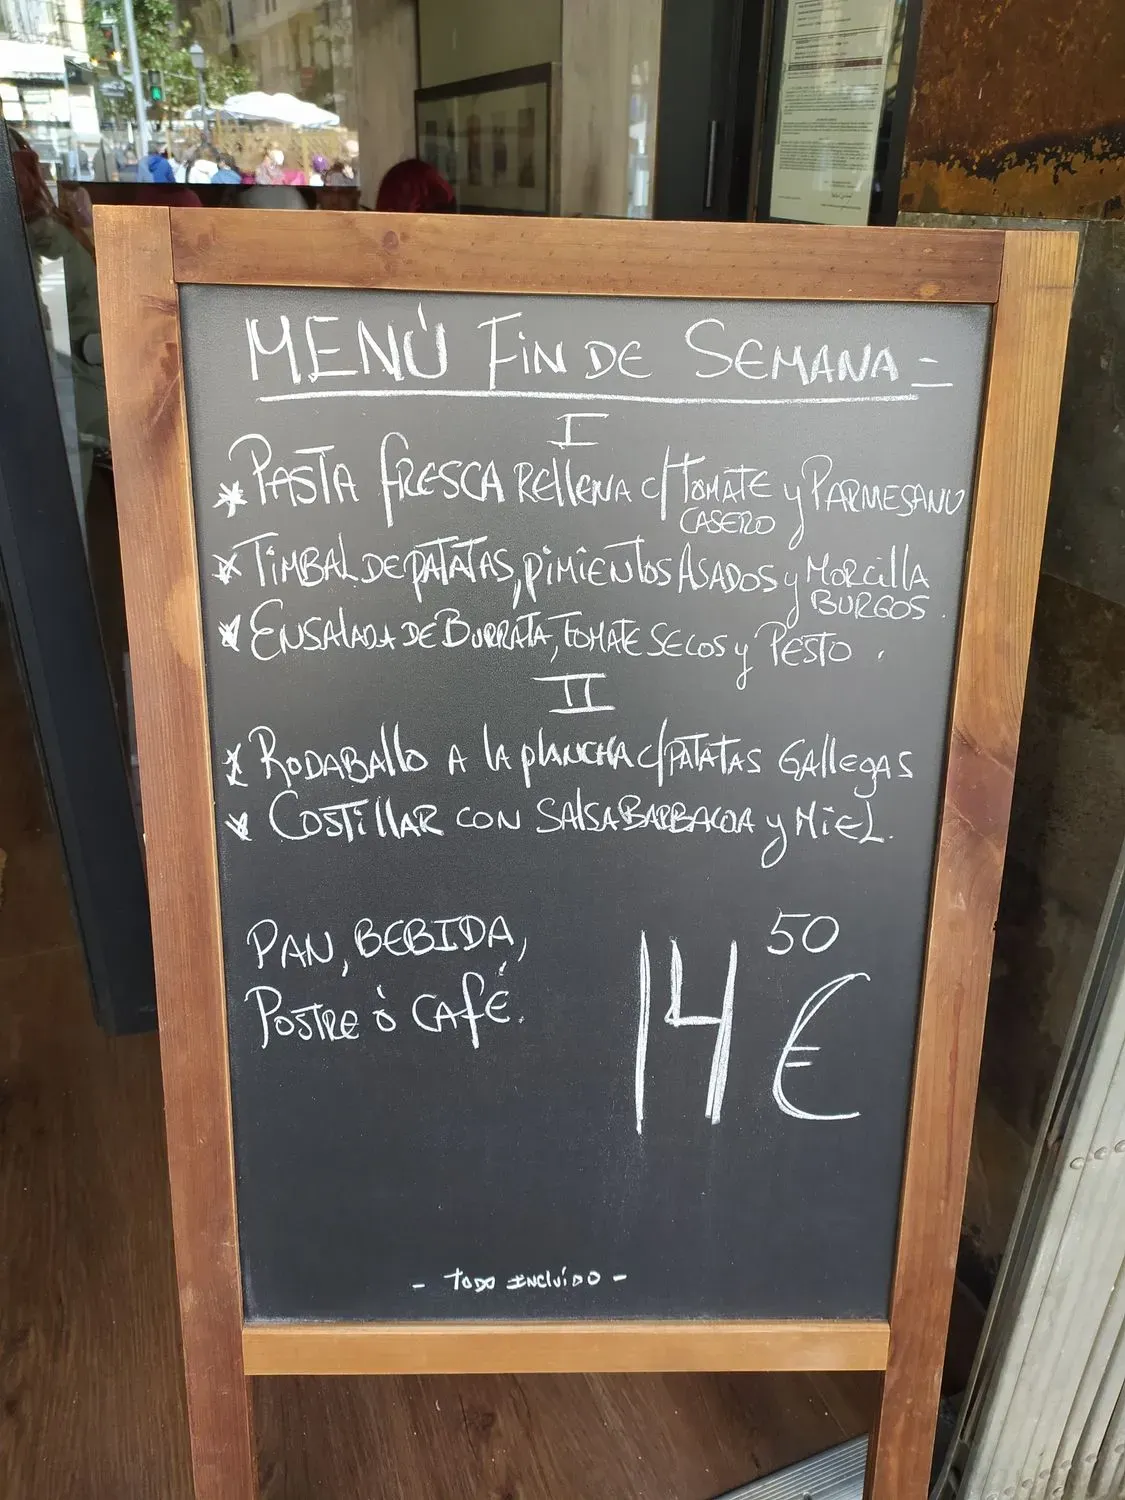 MENÙ FIN DE SEMANA =
I
* PASTA FRESCA RELLENA C/ TOMATE y PARMESANO
CASERO
* TIMBAL DE PATATAS, PIMIENTOS ASADOS y MORCILLA
BURGOS.
* ENSALADA DE BURRATA, TOMATE SECOS y PESTO.
II
* RODABALLO A LA PLANCHA C/ PATATAS GALLEGAS
* COSTILLAR CON SALSA BARBACOA y MIEL.
PAN, BEBIDA,
POSTRE ó CAFÉ.
14 50 €
- TODO INCLUÍDO -